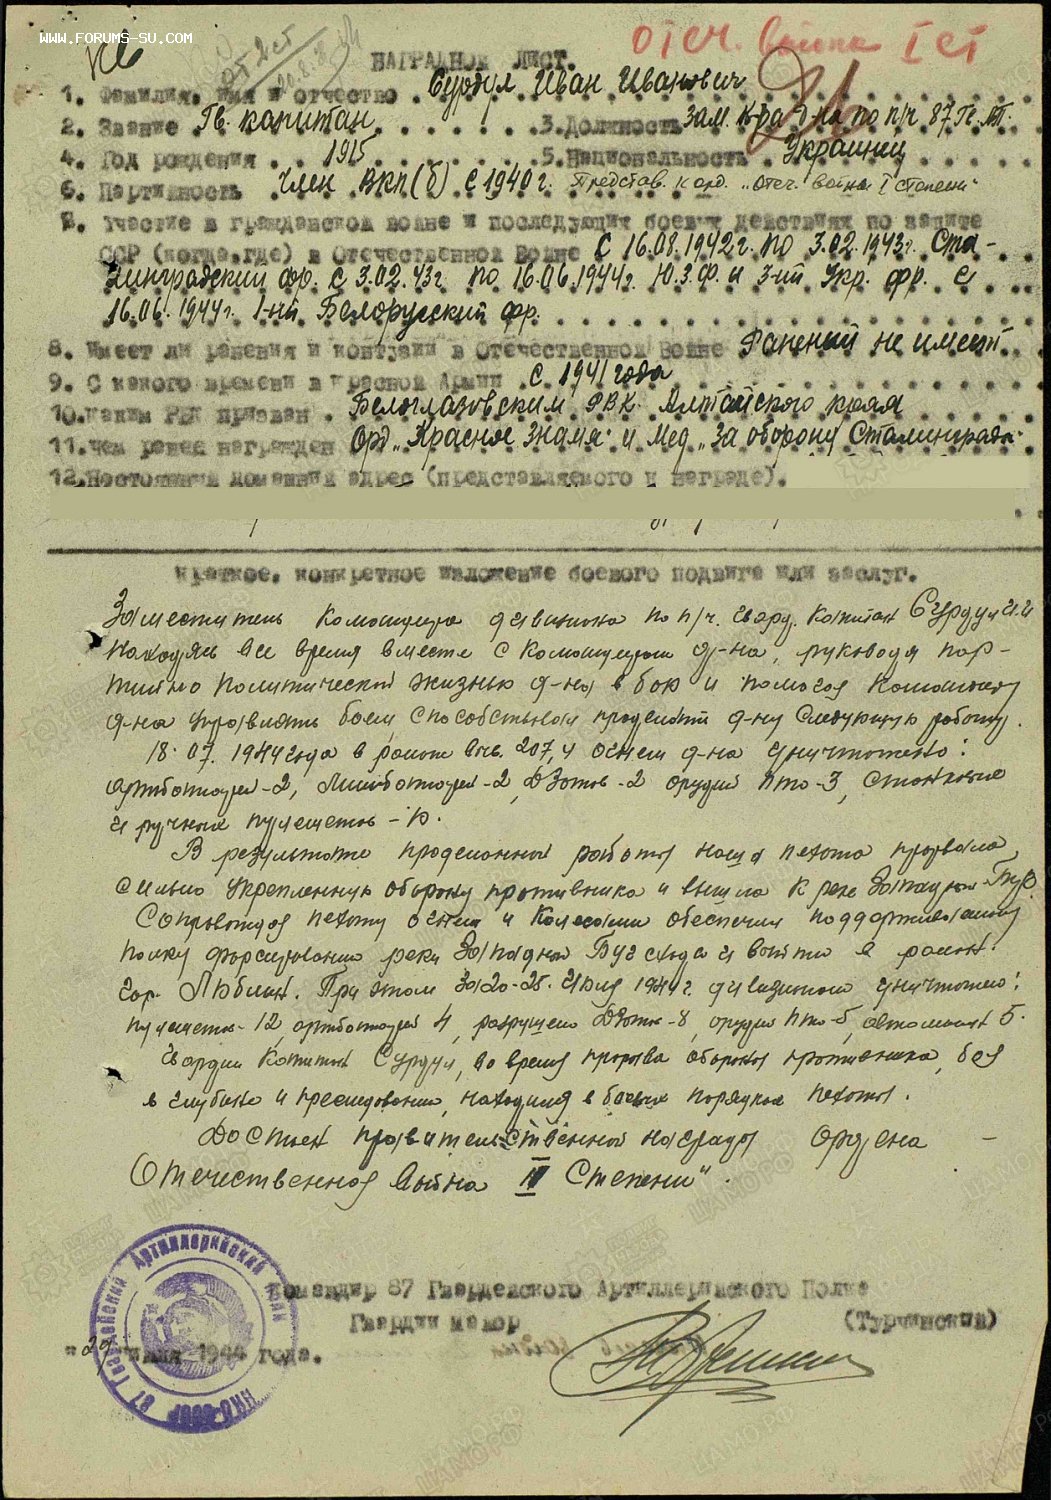 WWW.FORUMS-SU.COM
Отеч. война I ст
НАГРАДНОЙ ЛИСТ.
1. Фамилия, имя и отчество Сурдул Иван Иванович
2. Звание Гв. капитан 3. Должность зам. к-ра д-на по п/ч 87 Гв.
4. Год рождения 1915 5. Национальность Украинец
6. Партийность член ВКП(б) с 1940 г. Представ. к орд. „Отеч. война I степени"
7. Участие в гражданской войне и последующих боевых действиях по защите
СССР (когда, где) в Отечественной Войне с 16.08.1942 г. по 3.02.1943 г. Ста-
линградский фр. с 3.02.43 г. по 16.06.1944 г. Ю.З.Ф. и 3-ий Укр. фр. с
16.06.1944 г. 1-ый Белорусский фр.
8. Имеет ли ранения и контузии в Отечественной Войне Ранений не имеет
9. С какого времени в Красной Армии с 1941 года
10. Каким РВК призван Белоглазовским РВК Алтайского края
11. Чем ранее награжден Орд. „Красное Знамя" и Мед. „За оборону Сталинграда"
12. Постоянный домашний адрес (представляемого к награде).
Краткое, конкретное изложение боевого подвига или заслуг.
Заместитель командира дивизиона по п/ч. гвард. капитан Сурдул И.И
находясь все время вместе с командиром д-на, руководя пар-
тийно политической жизнью д-на в бою и помогая командиру
д-на управлять боем, способствовал проделать д-ну следующую работу.
18.07.1944 года в районе выс. 207,4 огнем д-на уничтожено:
артбатарей - 2, минбатарей - 2, ДЗотов - 2 орудий ПТО - 3, станковых
и ручных пулеметов - 10.
В результате проделанной работы наша пехота прорвала
сильно укрепленную оборону противника и вышла к реке Западный Буг.
Сопровождая пехоту огнем и колесами обеспечил поддерживаемому
полку форсирование реки Западный Буг сходу и выйти в район
гор. Люблин. При этом за 20-25 июля 1944 г. дивизионом уничтожено:
пулеметов - 12, артбатарей 4, разрушено ДЗотов - 8, орудий ПТО - 5, автомашин 5.
Гвардии капитан Сурдул, во время прорыва обороны противника, боя
в глубине и преследовании, находился в боевых порядках пехоты.
Достоин правительственной награды ордена
Отечественная Война II Степени".
Командир 87 Гвардейского Артиллерийского Полка
Гвардии майор (Турчинский)
"29" июля 1944 года.
87 Гвардейский Артиллерийский полк
НКО-СССР